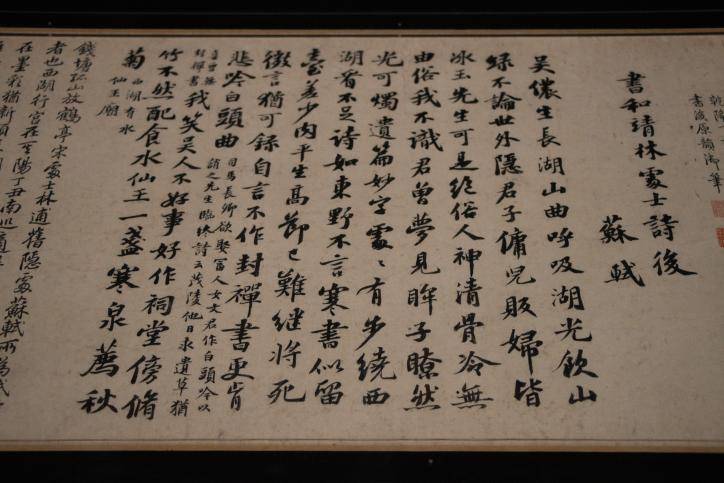 書後原韻御筆
書和靖林處士詩後
蘇軾
吳儂生長湖山曲呼吸湖光飲山
綠不論世外隱君子傭兒販婦皆
冰玉先生可是絕俗人神清骨冷無
由俗我不識君曾夢見眸子瞭然
光可燭遺篇妙字處〻有步繞西
湖看不足詩如東野不言寒書似留
臺差少肉平生高節已難繼將死
微言猶可錄自言不作封禪書更肯
悲吟白頭曲
司馬長卿欲娶富人女文君作白頭吟以
誚之先生臨終詩云茂陵他日求遺草猶
喜曾無
封禪書
我笑吳人不好事好作祠堂傍脩
竹不然配食水仙王一盞寒泉薦秋
菊
西湖有水
仙王廟
錢塘孤山放鶴亭宋處士林逋舊隱處蘇軾所為
者也西湖行宮在其陽丁丑南巡
在墨彩猶新